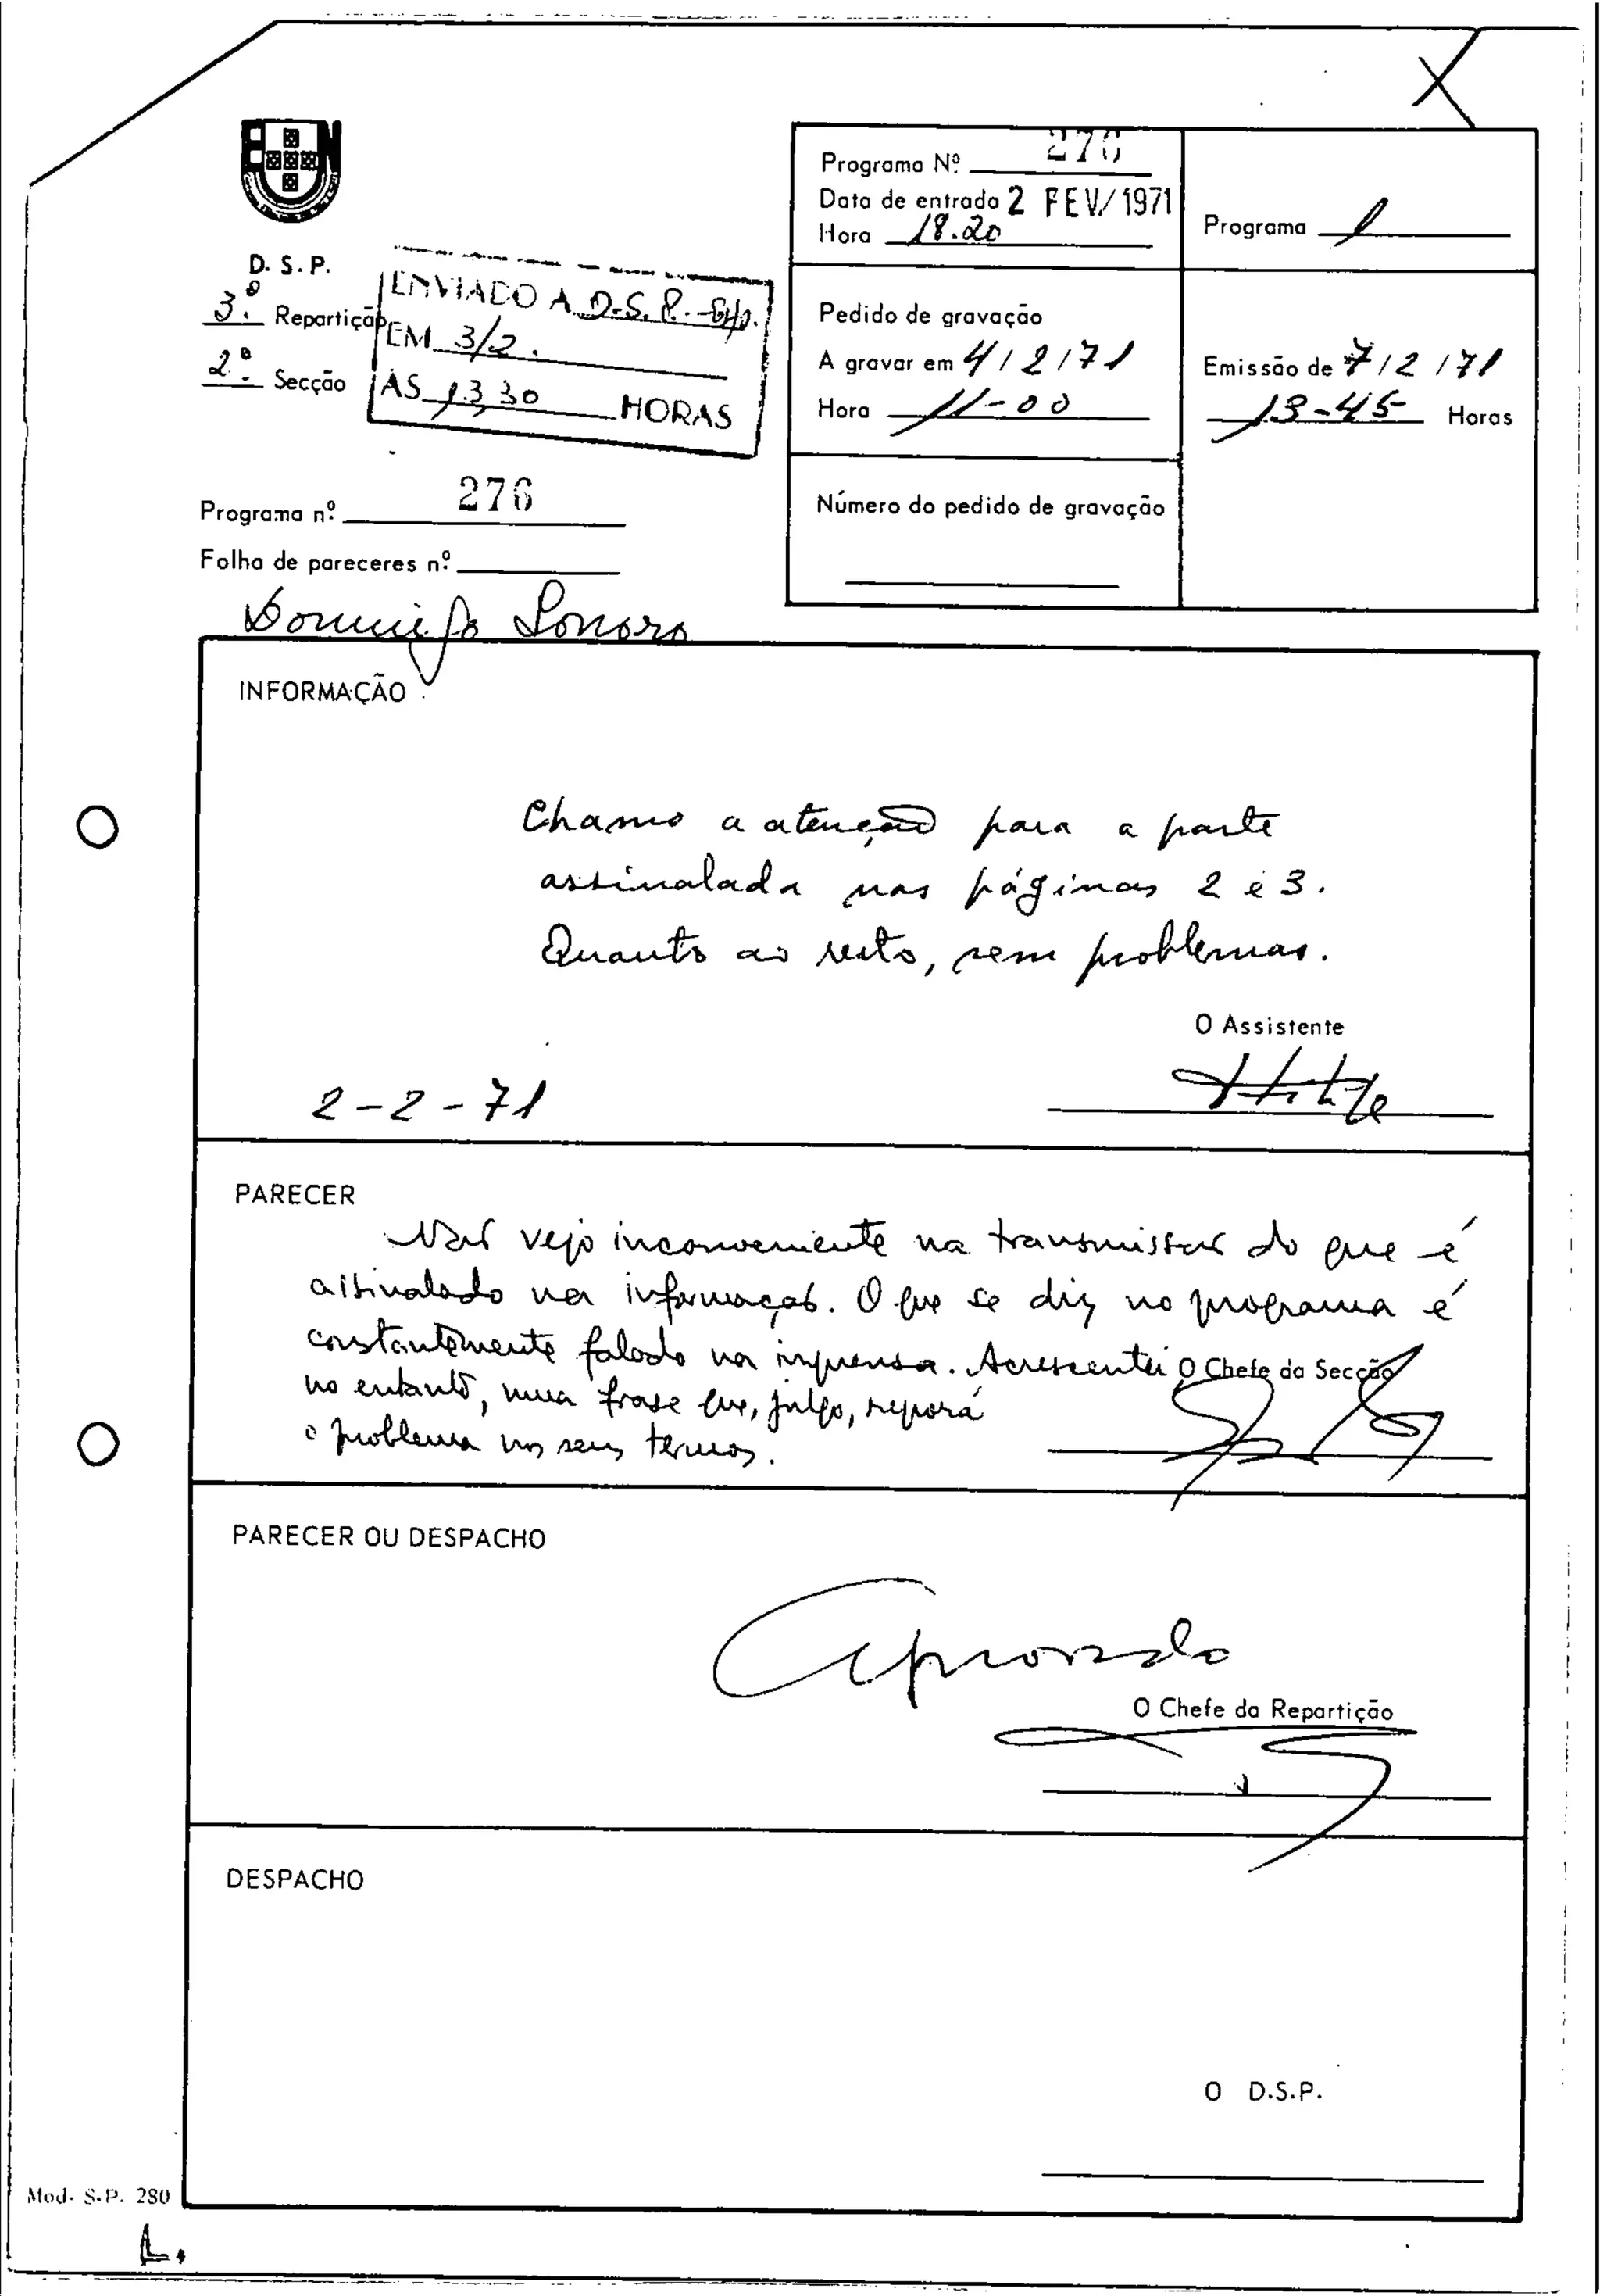 D. S. P.
3ª Repartição
2ª Secção
ENVIADO A D.S.P.
EM 3/2.
ÀS 13,30 HORAS
Programa nº 276
Folha de pareceres nº
Domingo Sonoro
Programa Nº 276
Data de entrada 2 FEV/1971
Hora 18.20
Programa 1
Pedido de gravação
A gravar em 4/2/71
Hora 11-00
Emissão de 7/2/71
13-45 Horas
Número do pedido de gravação
INFORMAÇÃO
Chamo a atenção para a parte
assinalada nas páginas 2 e 3.
Quanto ao resto, sem problemas.
O Assistente
2-2-71
PARECER
Não vejo inconveniente na transmissão do que é
assinalado na informação. O que se diz no programa é
constantemente falado na imprensa. Acrescentei
no entanto, uma frase que, julgo, reporá
o problema nos seus termos.
O Chefe da Secção
PARECER OU DESPACHO
Aprovado
O Chefe da Repartição
DESPACHO
O D.S.P.
Mod. S.P. 280
L.